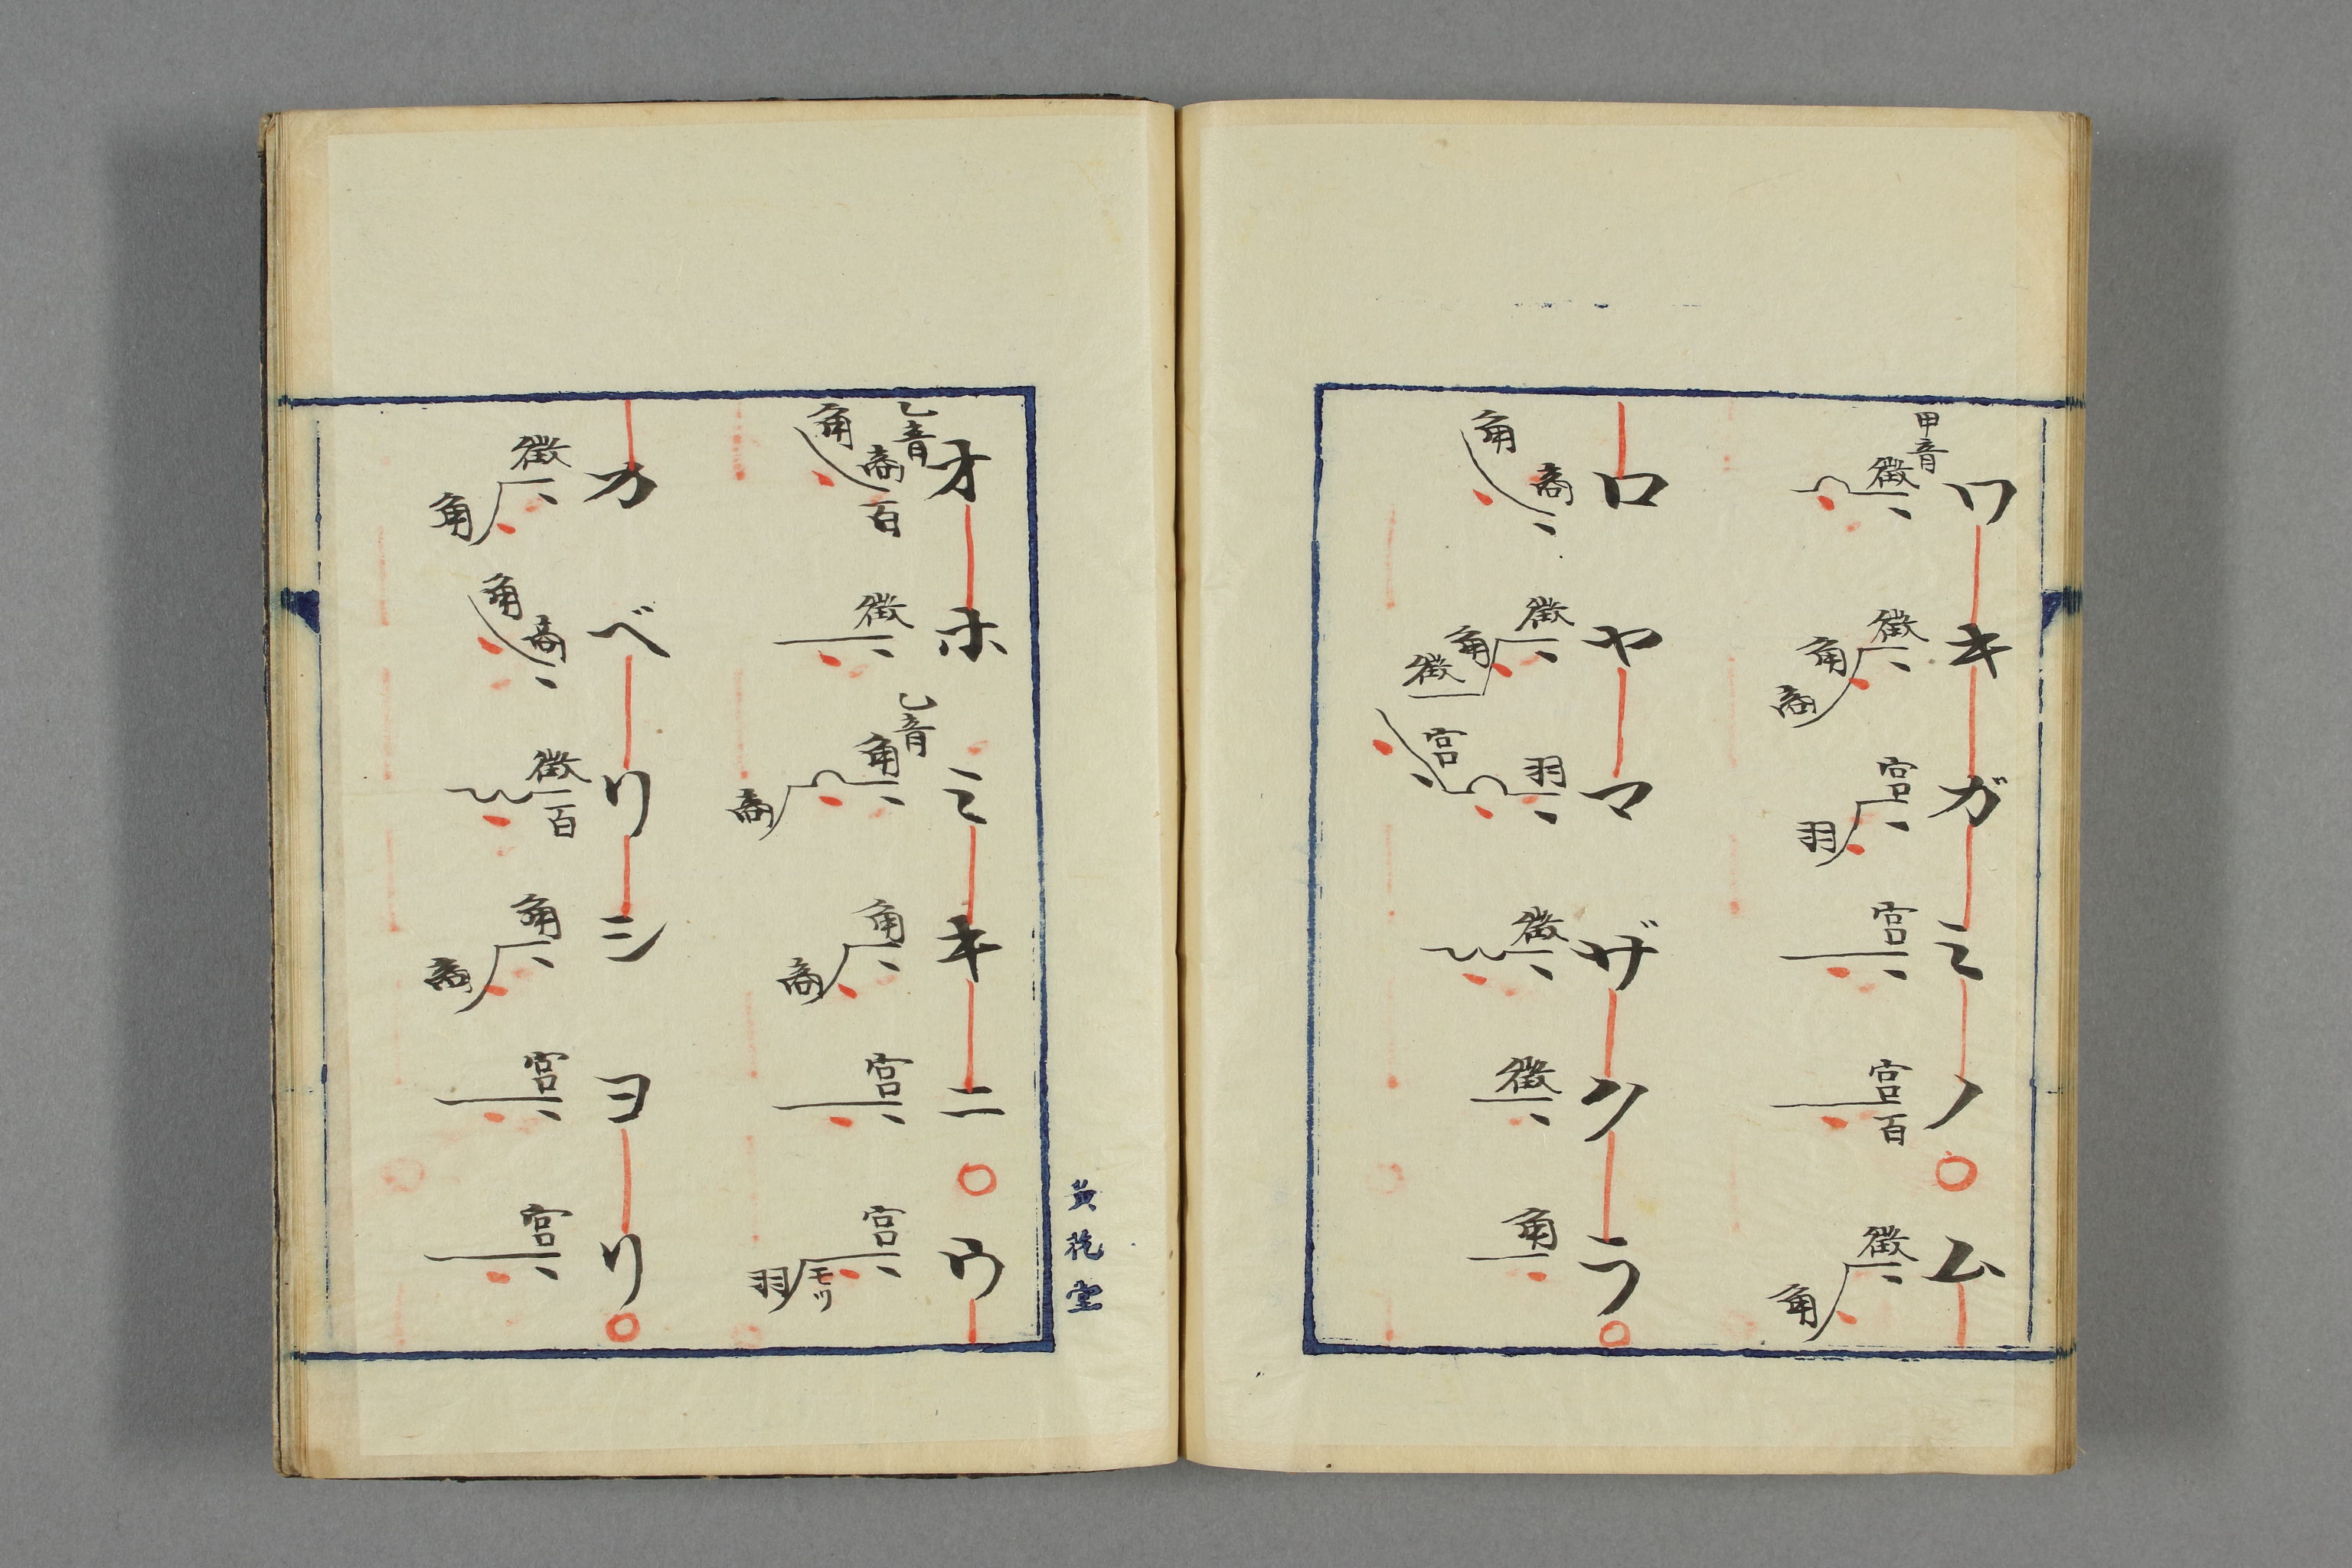 ワキガミノ○ム
甲音 徴 徴 角 商 宮 羽 宮 宮 百 徴 角
ロヤマザクラ○
角 商 徴 角 徴 羽 宮 徴 徴 角
オホミキニ○ウ
乙音 角 商 百 徴 乙音 角 商 角 商 宮 宮 モツ 羽
カベリシヨリ○
徴 角 角 商 徴 百 角 商 宮 宮